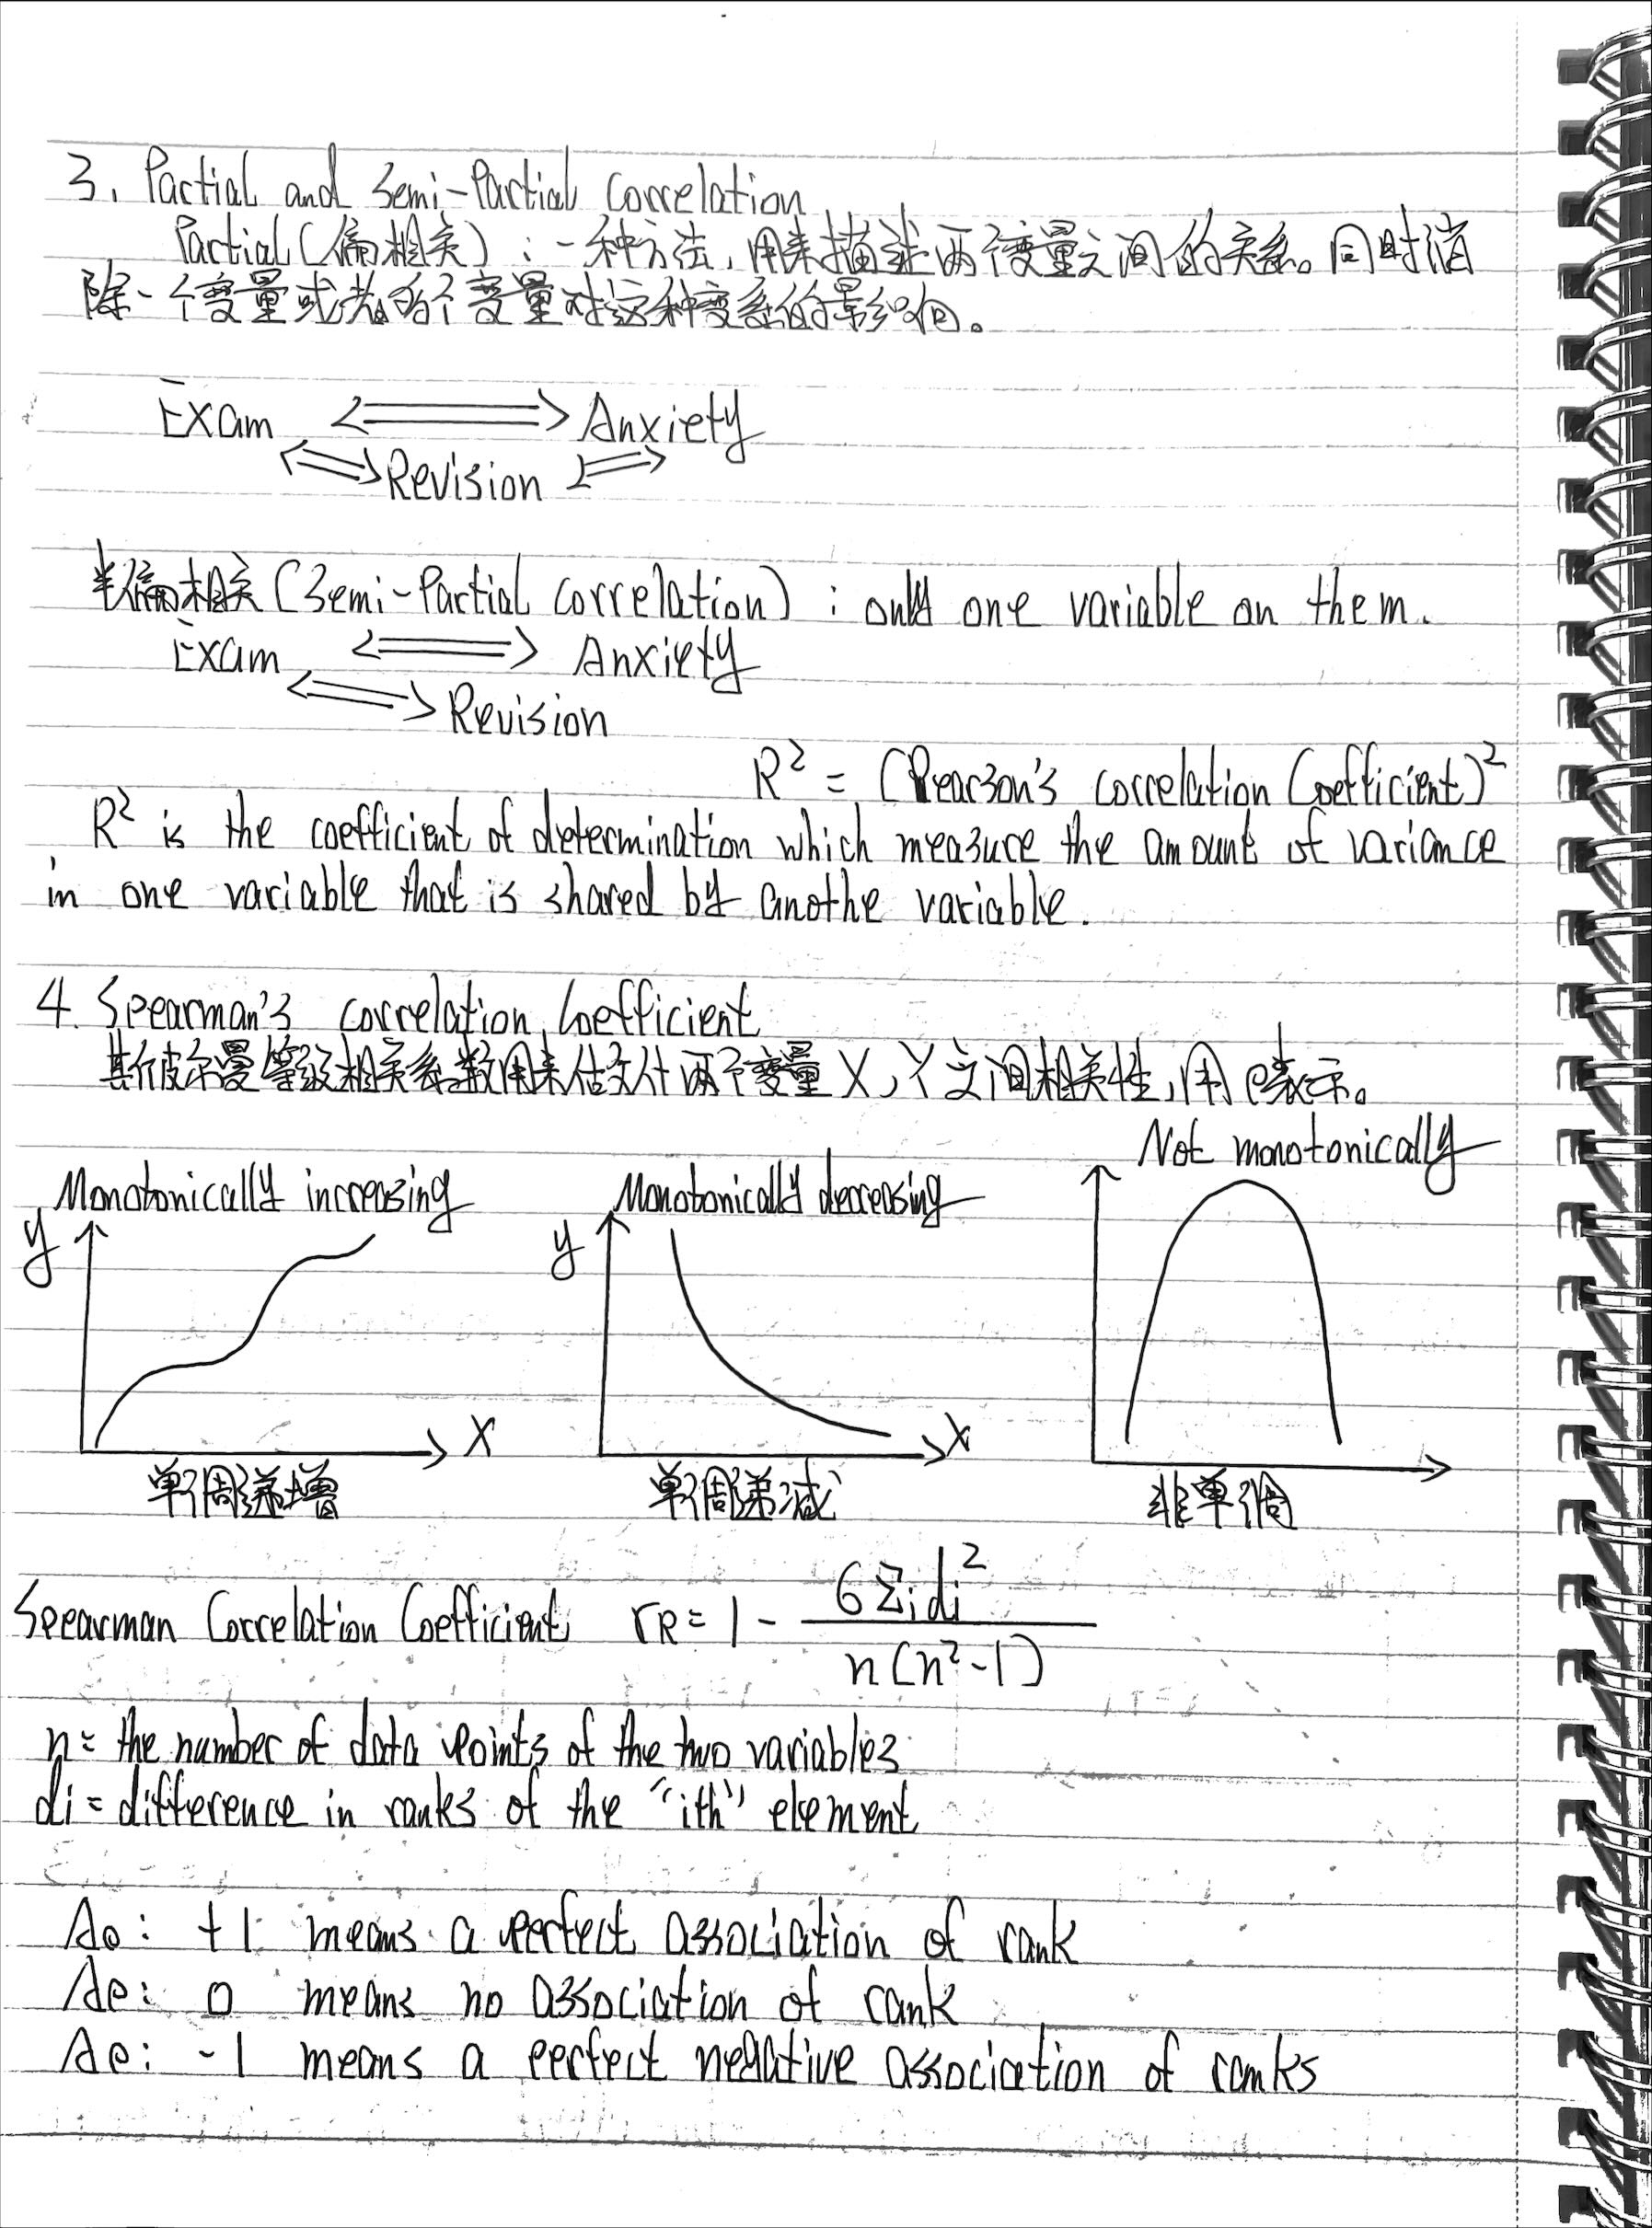 3. Partial and Semi-Partial Correlation
Partial (偏相关) : 一种方法, 用来描述两个变量之间的关系。同时消
除一个变量或者两个变量对这种变系的影响。
Exam Anxiety
Revision
半偏相关 (Semi-Partial Correlation) : only one variable on them.
Exam Anxiety
Revision
R² = (Pearson's correlation Coefficient)²
R² is the coefficient of determination which measure the amount of variance
in one variable that is shared by anothe variable.
4. Spearman's correlation Coefficient
彼尔曼等级相关系数用来估计两个变量 X, Y 之间相关性, 用 ρ表示。
Not monotonically
Monotonically increasing Monotonically decreasing
y y
X X
单调递增 单调递减 非单调
Spearman Correlation Coefficient rR = 1 - 6Σidi² / n(n²-1)
n = the number of data points of the two variables
di = difference in ranks of the "ith" element
+1 means a perfect association of rank
0 means no association of rank
-1 means a perfect negative association of ranks